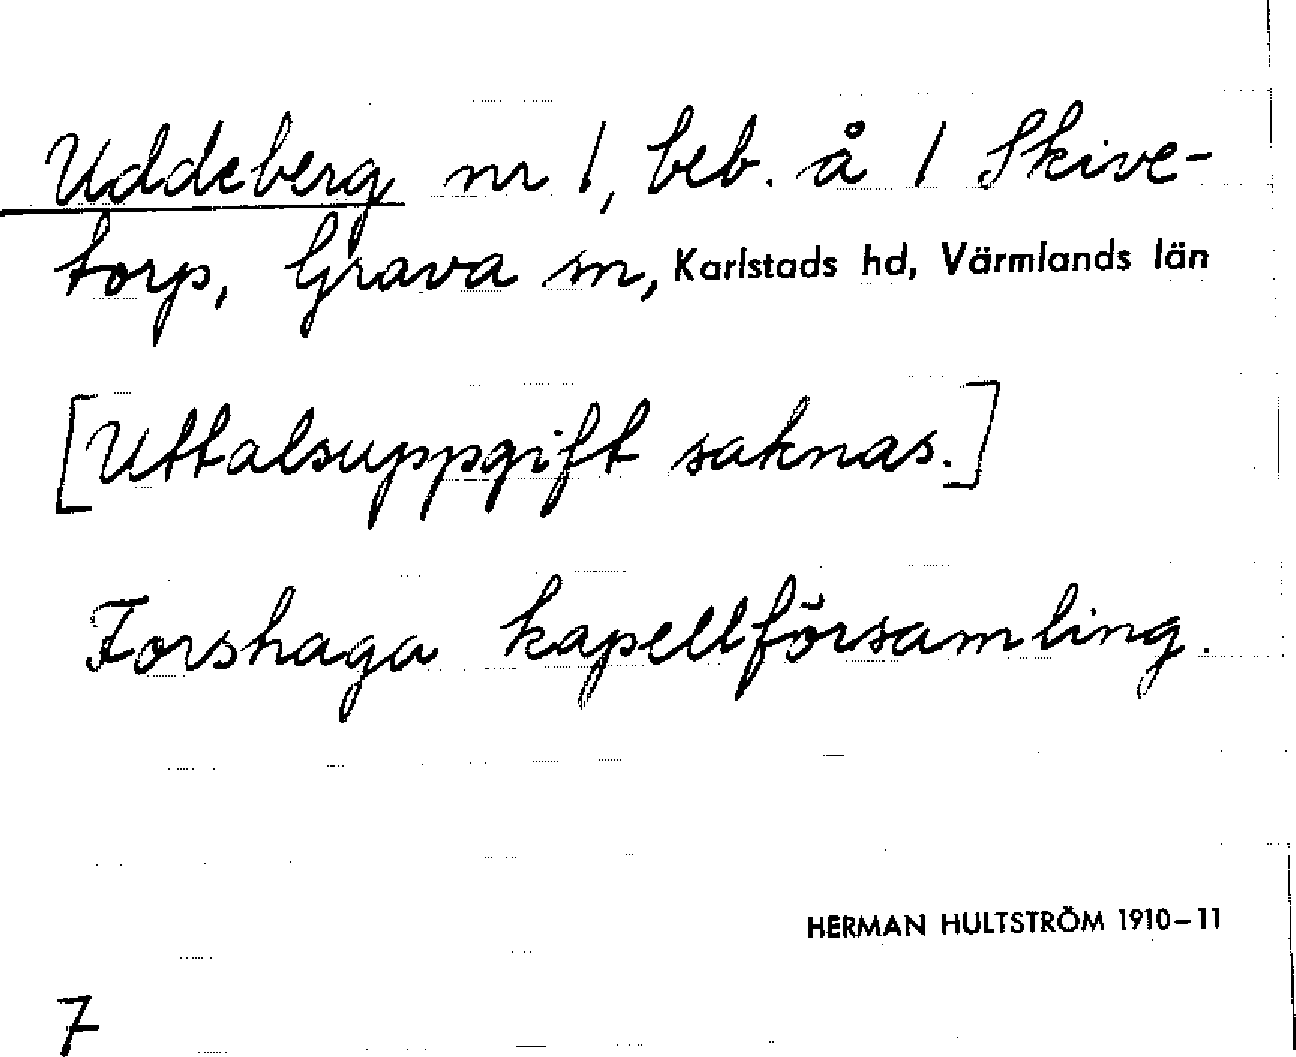 Uddeberg nr 1, beb. å 1 Skive-
torp, Grava sn, Karlstads hd, Värmlands län
[Uttalsuppgift saknas.]
Forshaga kapellförsamling.
HERMAN HULTSTRÖM 1910–11
7